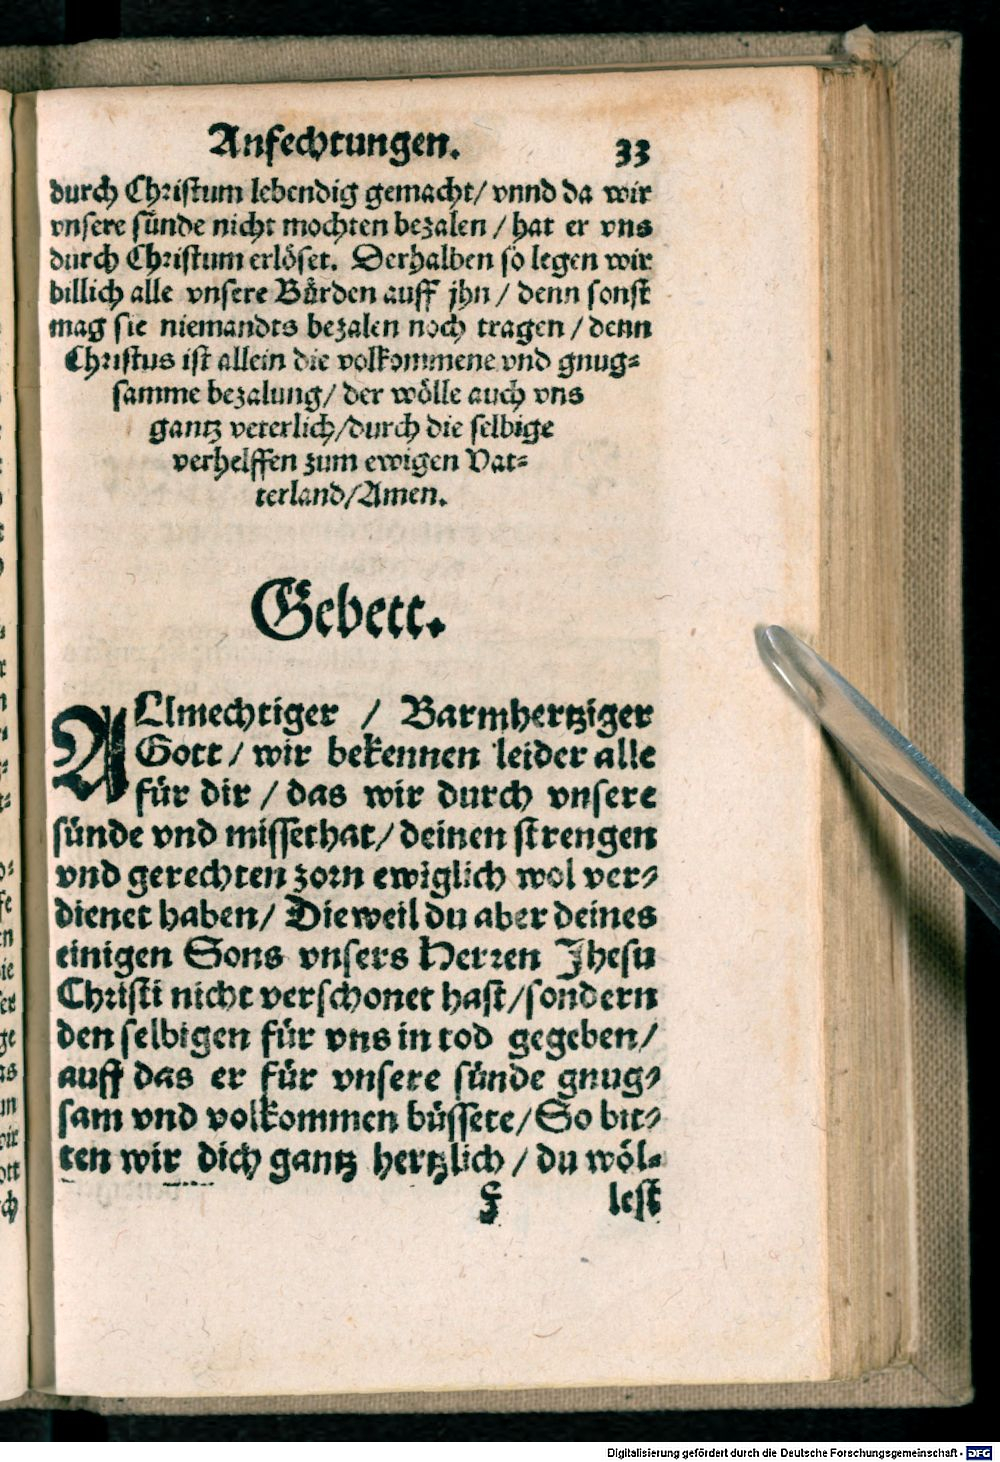 Anfechtungen. 33
durch Christum lebendig gemacht/ vnnd da wir
vnsere sünde nicht mochten bezalen / hat er vns
durch Christum erlöset. Derhalben so legen wir
billich alle vnsere Bürden auff jhn / denn sonst
mag sie niemandts bezalen noch tragen / denn
Christus ist allein die volkommene vnd gnug=
samme bezalung/ der wölle auch vns
gantz veterlich/durch die selbige
verhelffen zum ewigen Vat=
terland/Amen.
Gebett.
ALlmechtiger / Barmhertziger
Gott / wir bekennen leider alle
für dir / das wir durch vnsere
sünde vnd missethat/ deinen strengen
vnd gerechten zorn ewiglich wol ver=
dienet haben/ Dieweil du aber deines
einigen Sons vnsers Herren Jhesu
Christi nicht verschonet hast/sondern
den selbigen für vns in tod gegeben/
auff das er für vnsere sünde gnug=
sam vnd volkommen büssete/ So bit=
ten wir dich gantz hertzlich / du wöl=
lest
Digitalisierung gefördert durch die Deutsche Forschungsgemeinschaft - DFG